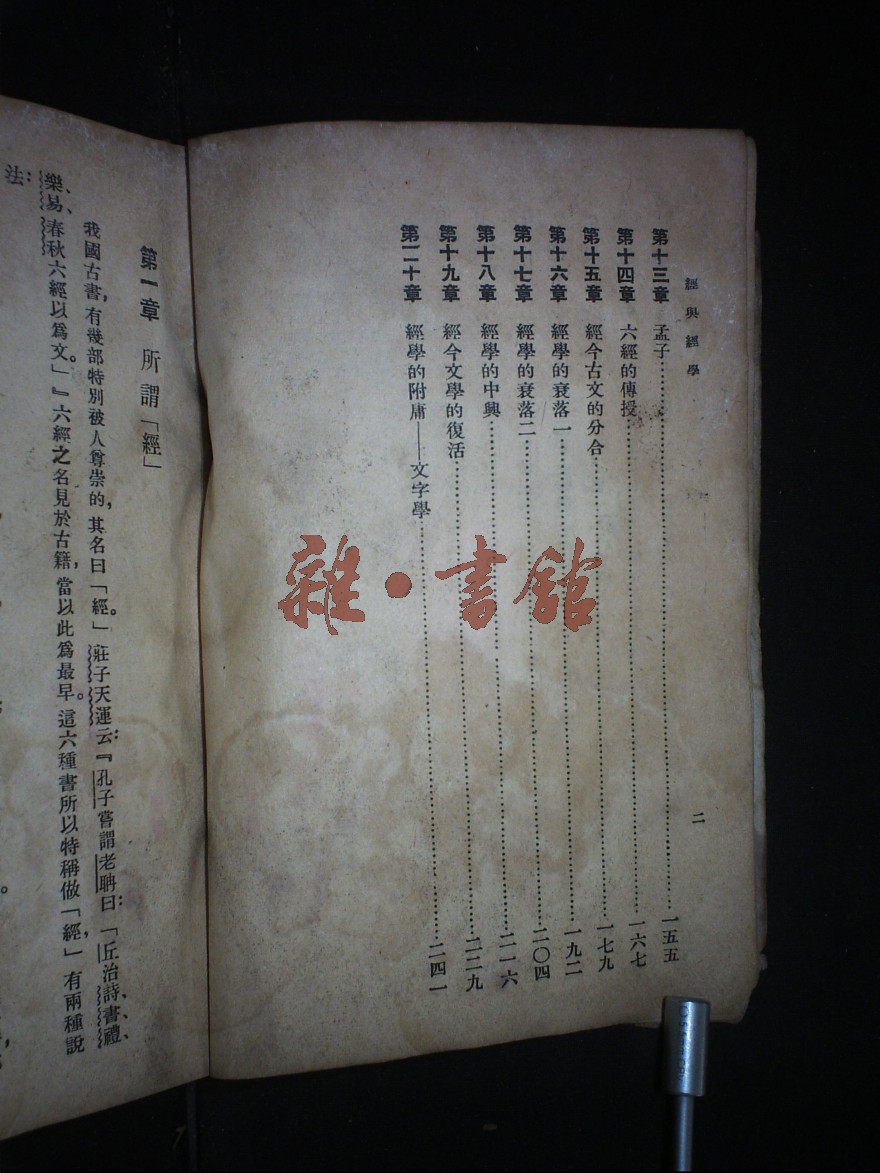 經與經學
二
第十三章 孟子……一五五
第十四章 六經的傳授……一六七
第十五章 經今古文的分合……一七九
第十六章 經學的衰落一……一九二
第十七章 經學的衰落二……二〇四
第十八章 經學的中興……二一六
第十九章 經今文學的復活……二二九
第二十章 經學的附庸——文字學……二四一
第一章 所謂「經」
我國古書,有幾部特別被人尊崇的,其名曰「經。」莊子天運云:『孔子嘗謂老聃曰:「丘治詩、書、禮、
樂、易、春秋六經以爲文。」』六經之名見於古籍,當以此爲最早。這六種書所以特稱做「經,」有兩種說
法:
雜·書館